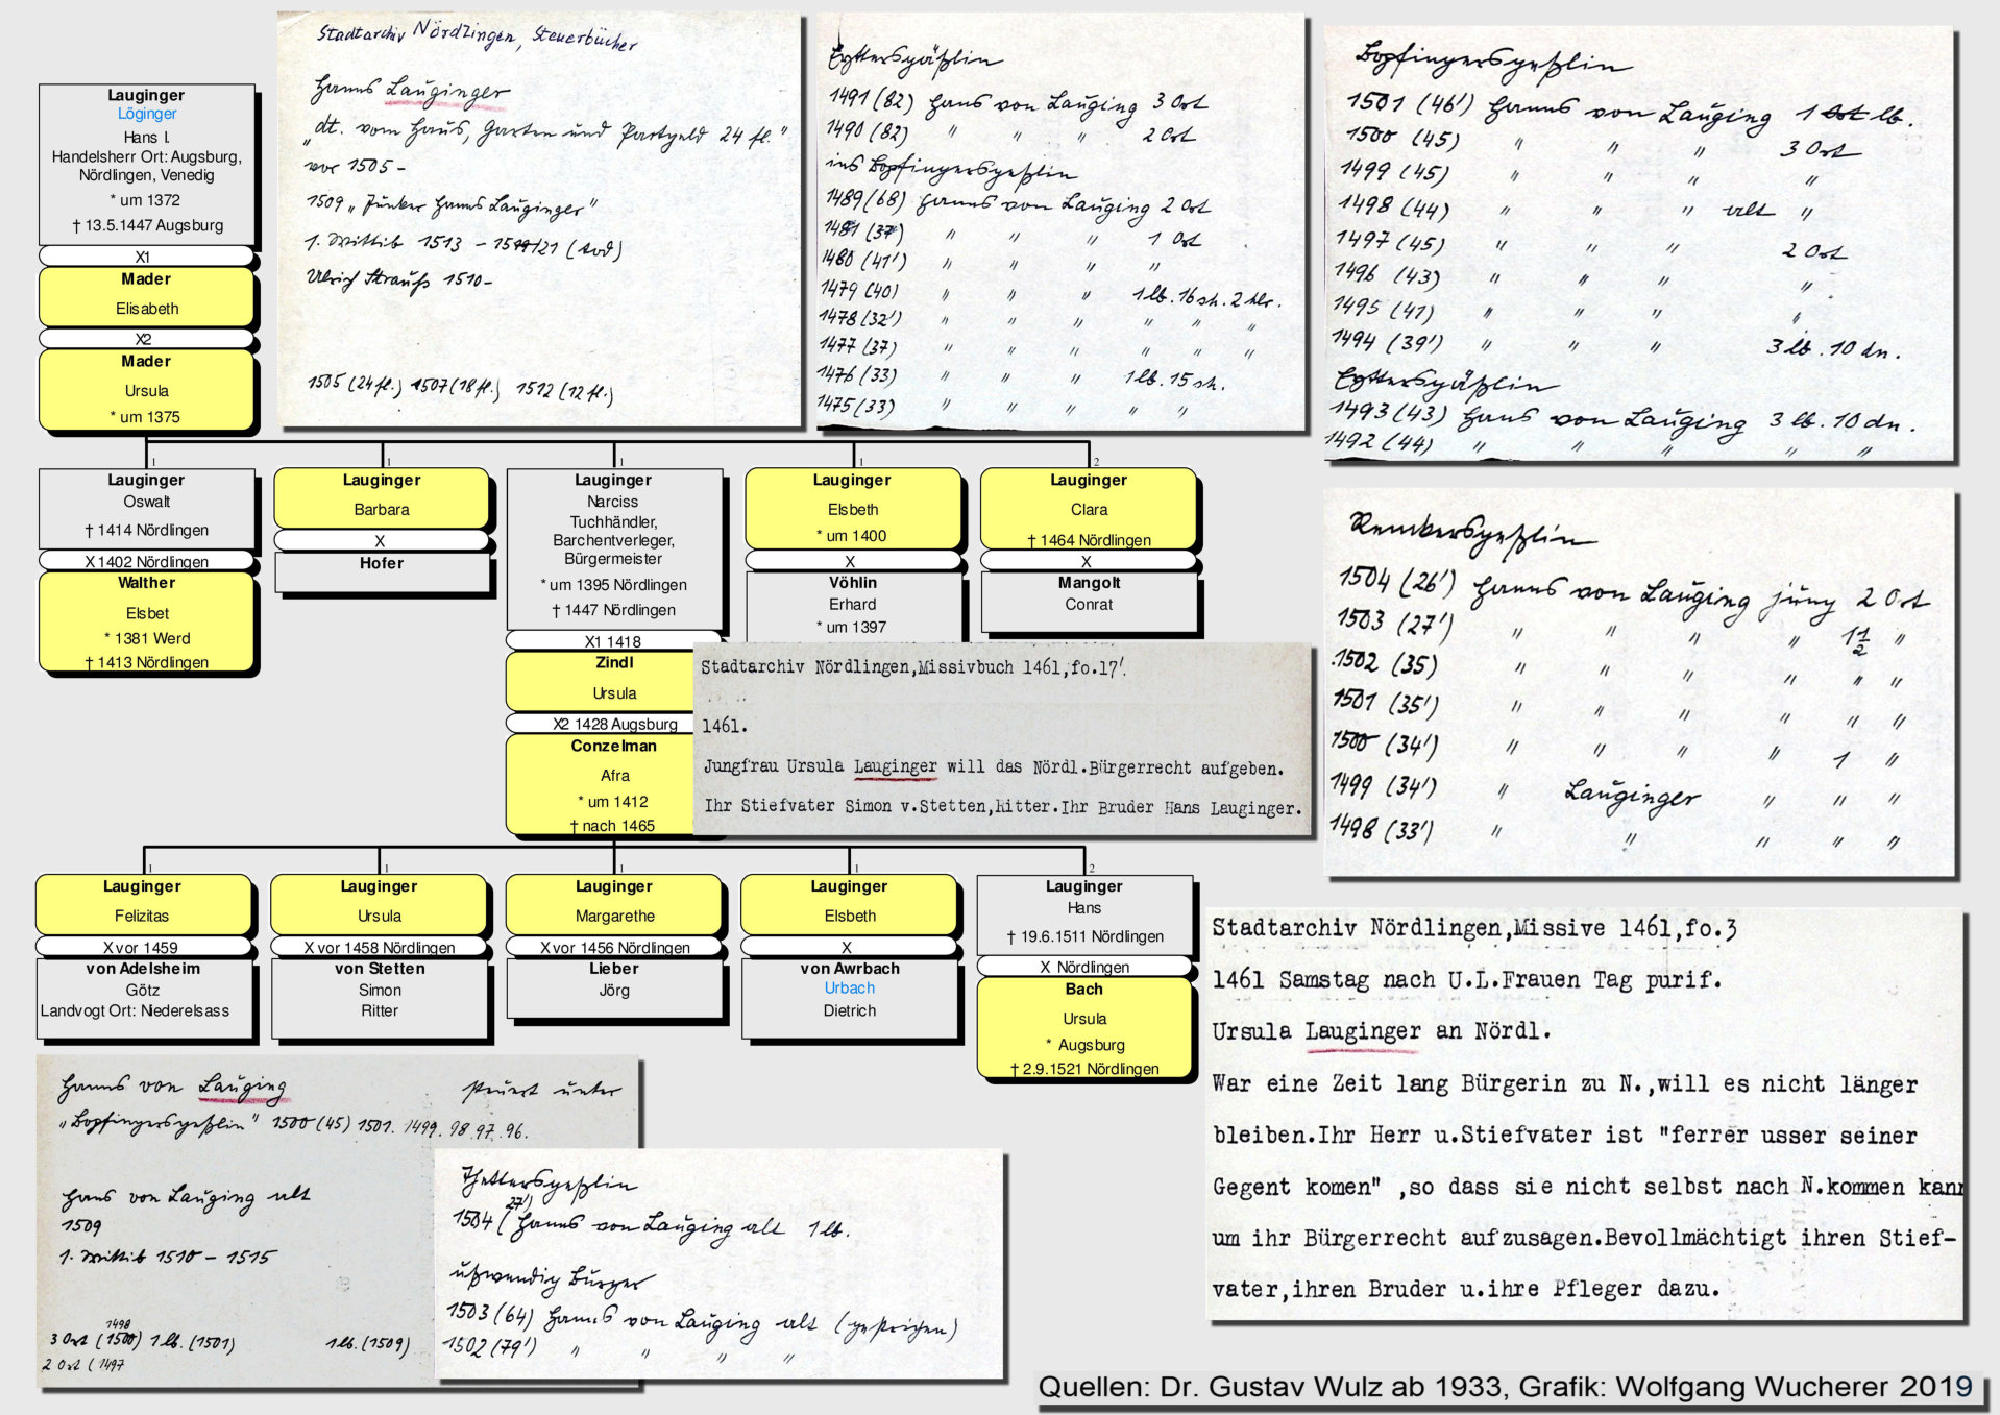 Lauginger
Löginger
Hans I.
Handelsherr Ort: Augsburg,
Nördlingen, Venedig
* um 1372
† 13.5.1447 Augsburg
X1
Mader
Elisabeth
X2
Mader
Ursula
* um 1375
Stadtarchiv Nördlingen, Steuerbücher
Hanns Lauginger
"dt. vom Haus, Garten und Partgeld 24 fl."
vor 1505 -
1509 "Junker Hanns Lauginger"
1. Wittib 1513 -
Ulrich Strauß 1510 -
1505 (24 fl.) 1507 (18 fl.) 1512 (12 fl.)
1491 (82) Hans von Lauging 3 Ort
1490 (82) " " " 2 Ort
ins Bopfingersgeßlin
1489 (68) Hanns von Lauging 2 Ort
1481 (37) " " " 1 Ort
1480 (41') " " " "
1479 (40) " " " 1 lb. 16 sh. 2 hlr.
1478 (32') " " " " " "
1477 (37) " " " " " "
1476 (33) " " " 1 lb. 15 sh.
1475 (33) " " " " "
Bopfingersgeßlin
1501 (46') Hanns von Lauging 1 lb.
1500 (45) " " " 3 Ort
1499 (45) " " " "
1498 (44) " " " alt "
1497 (45) " " " 2 Ort
1496 (43) " " " "
1495 (41) " " " "
1494 (39') " " " 3 lb. 10 dn.
1493 (43) Hans von Lauging 3 lb. 10 dn.
1492 (44) " " " " "
1
Lauginger
Oswalt
† 1414 Nördlingen
X 1402 Nördlingen
Walther
Elsbet
* 1381 Werd
† 1413 Nördlingen
1
Lauginger
Barbara
X
Hofer
1
Lauginger
Narciss
Tuchhändler,
Barchentverleger,
Bürgermeister
* um 1395 Nördlingen
† 1447 Nördlingen
X1 1418
Zindl
Ursula
X2 1428 Augsburg
Conzelman
Afra
* um 1412
† nach 1465
1
Lauginger
Elsbeth
* um 1400
X
Vöhlin
Erhard
* um 1397
2
Lauginger
Clara
† 1464 Nördlingen
X
Mangolt
Conrat
Stadtarchiv Nördlingen,Missivbuch 1461,fo.17'.
1461.
Jungfrau Ursula Lauginger will das Nördl.Bürgerrecht aufgeben.
Ihr Stiefvater Simon v.Stetten,Ritter.Ihr Bruder Hans Lauginger.
1504 (26') Hanns von Lauging jung 2 Ort
1503 (27') " " " " 1 1/2 "
1502 (35) " " " " " "
1501 (35') " " " " " "
1500 (34') " " " " 1 "
1499 (34') " Lauginger " " "
1498 (33') " " " " "
1
Lauginger
Felizitas
X vor 1459
von Adelsheim
Götz
Landvogt Ort: Niederelsass
1
Lauginger
Ursula
X vor 1458 Nördlingen
von Stetten
Simon
Ritter
1
Lauginger
Margarethe
X vor 1456 Nördlingen
Lieber
Jörg
1
Lauginger
Elsbeth
X
von Awrbach
Urbach
Dietrich
2
Lauginger
Hans
† 19.6.1511 Nördlingen
X Nördlingen
Bach
Ursula
* Augsburg
† 2.9.1521 Nördlingen
Stadtarchiv Nördlingen,Missive 1461,fo.3
1461 Samstag nach U.L.Frauen Tag purif.
Ursula Lauginger an Nördl.
War eine Zeit lang Bürgerin zu N.,will es nicht länger
bleiben.Ihr Herr u.Stiefvater ist "ferrer usser seiner
Gegent komen" ,so dass sie nicht selbst nach N.kommen kann
um ihr Bürgerrecht aufzusagen.Bevollmächtigt ihren Stief-
vater,ihren Bruder u.ihre Pfleger dazu.
Hanns von Lauging steuert unter
"Bopfingersgeßlin" 1500 (45) 1501. 1499. 98. 97. 96.
Hans von Lauging alt
1509
1. Wittib 1510 - 1515
1498
3 Ort (1500) 1 lb. (1501) 1 lb. (1509)
2 Ort (1497
27')
1504 ( Hanns von Lauging alt 1 lb.
ußwendig Burger
1503 (64) Hanns von Lauging alt (gestrichen)
1502 (79') " " " "
Quellen: Dr. Gustav Wulz ab 1933, Grafik: Wolfgang Wucherer 2019